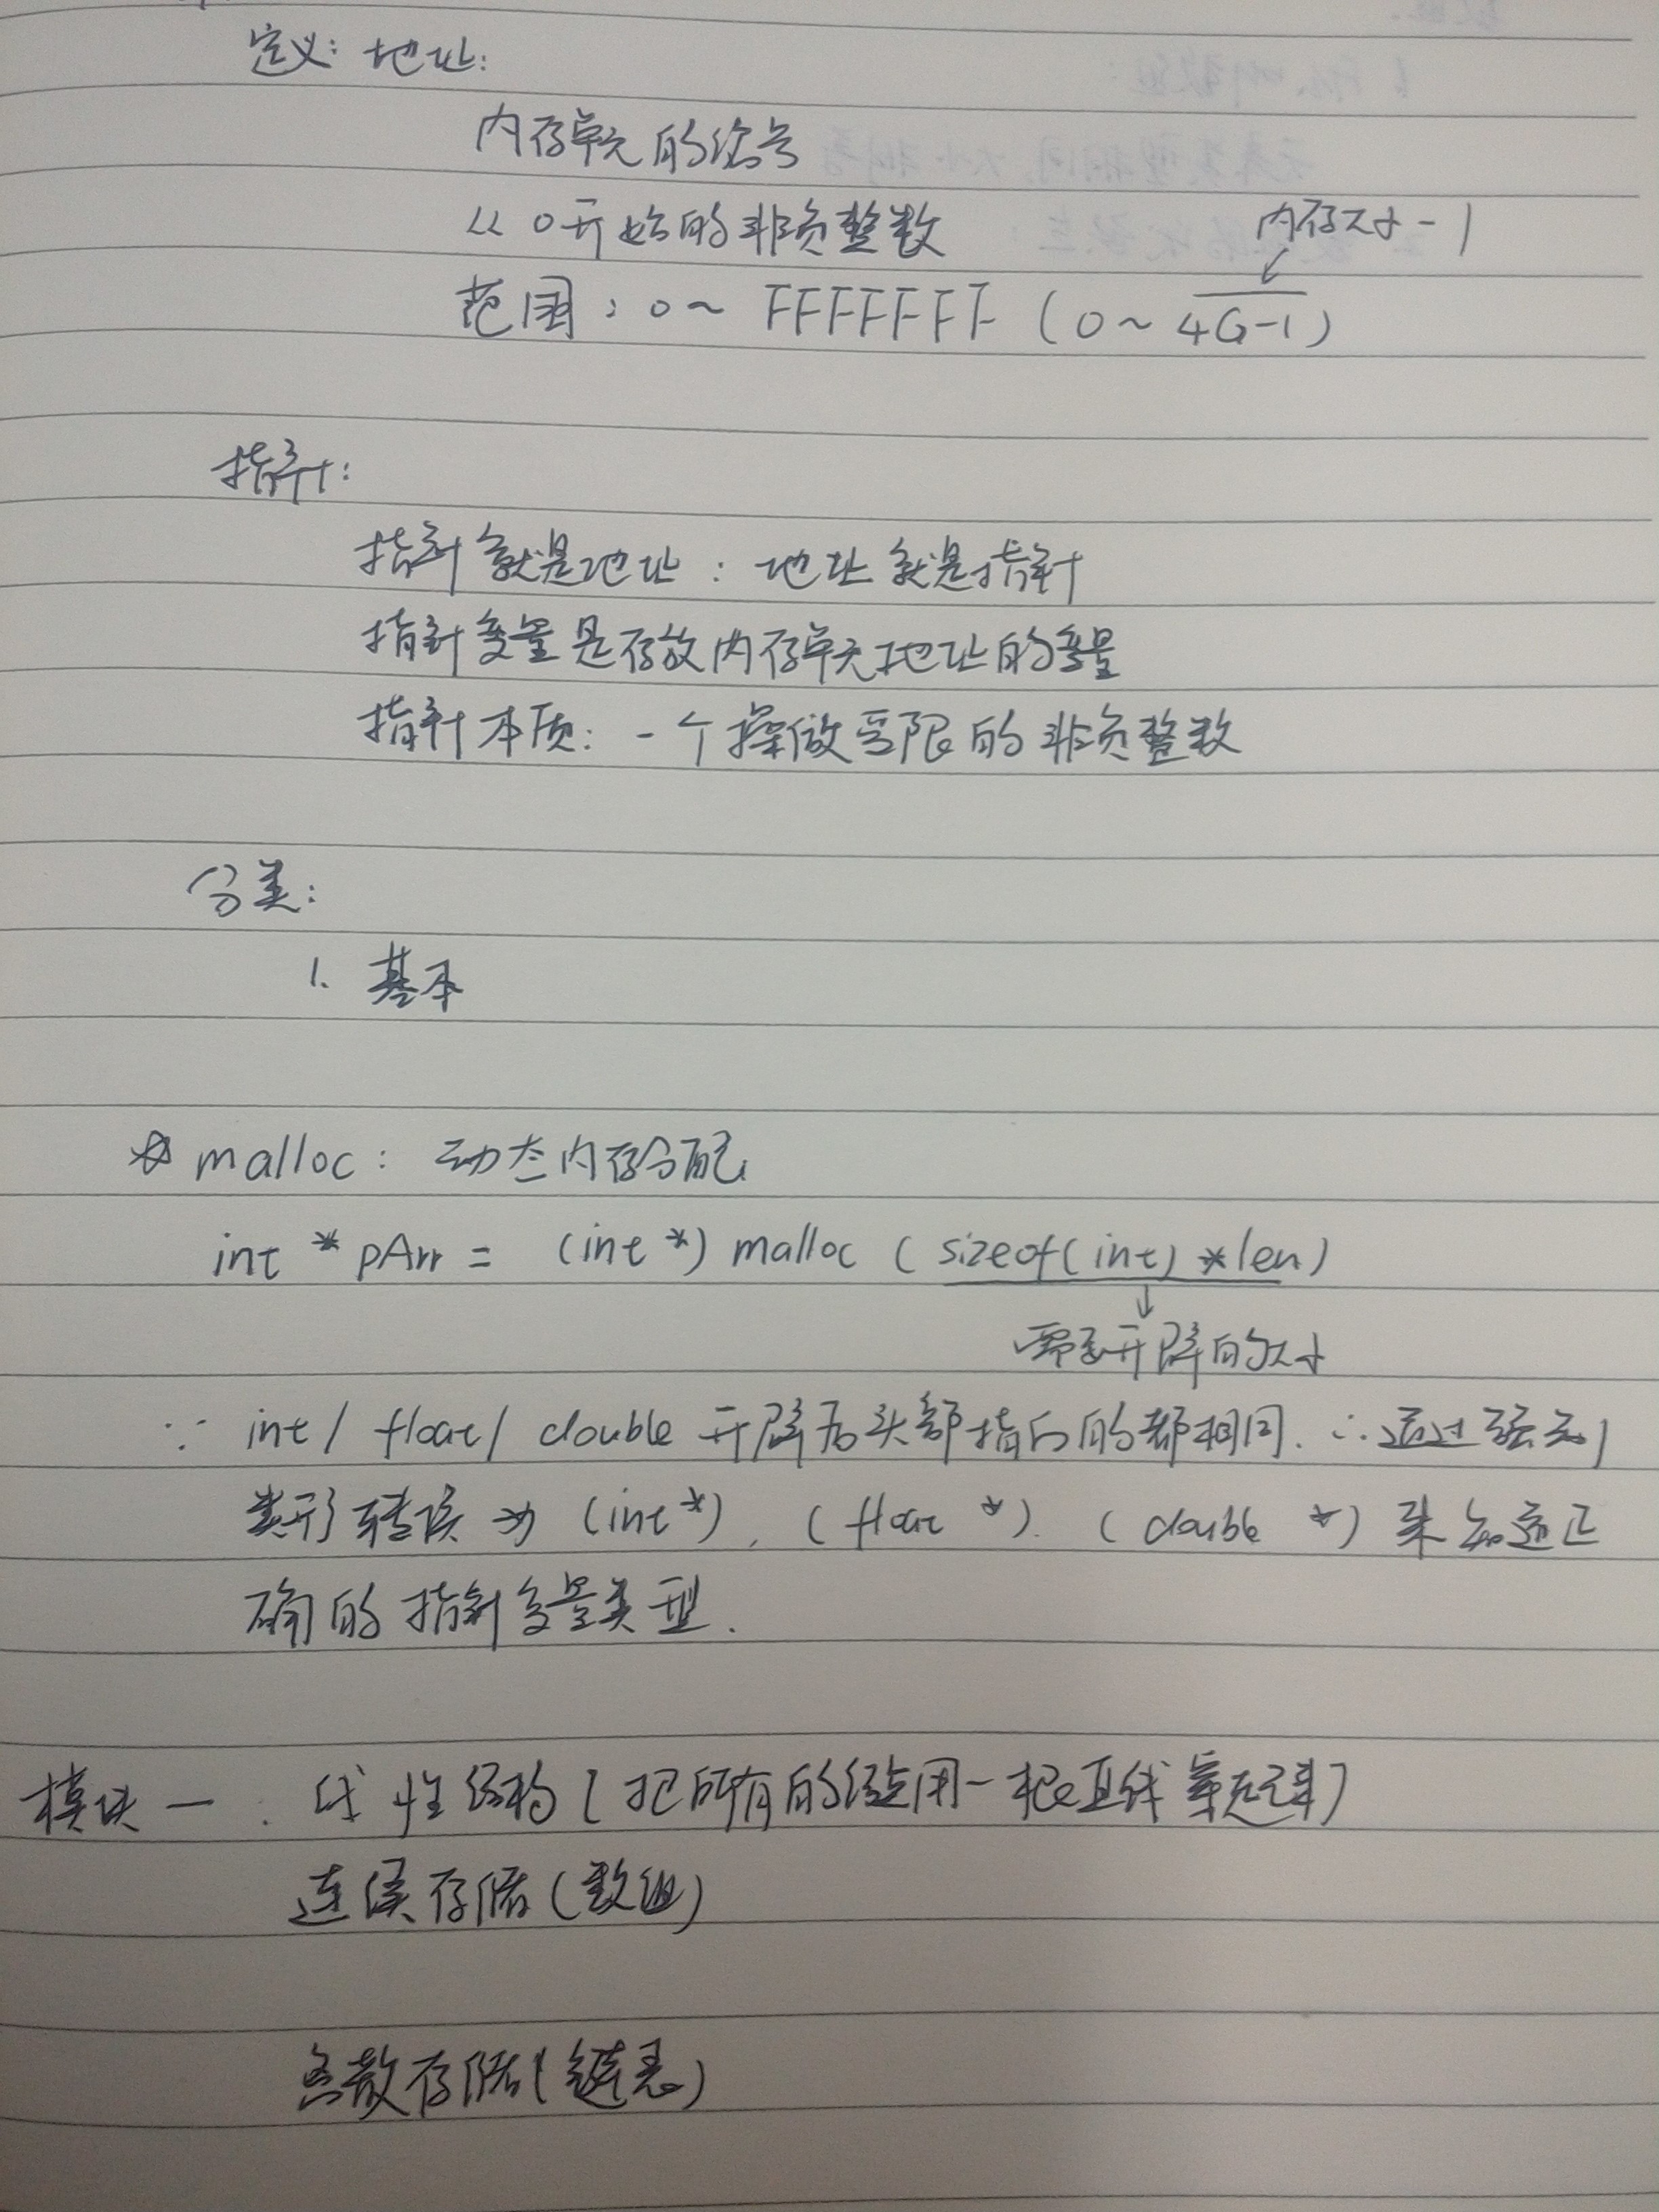 定义: 地址:
内存单元的编号
从0开始的非负整数
内存大小-1
范围: 0~ FFFFFFF (0~4G-1)
指针:
指针就是地址: 地址就是指针
指针变量是存放内存单元地址的变量
指针本质: 一个操做受限的非负整数
分类:
1. 基本
☆ malloc: 动态内存分配
int * pArr = (int *) malloc ( sizeof(int) *len)
↓
需要开辟的大小
∵ int/ float/ double 开辟后头部指向的都相同. ∴通过强制
类形转换为 (int*), (float *). (double *) 来知道正
确的指针变量类型.
模块一: 线性结构[把所有的结点用一根直线穿起来]
连续存储(数组)
离散存储(链表)